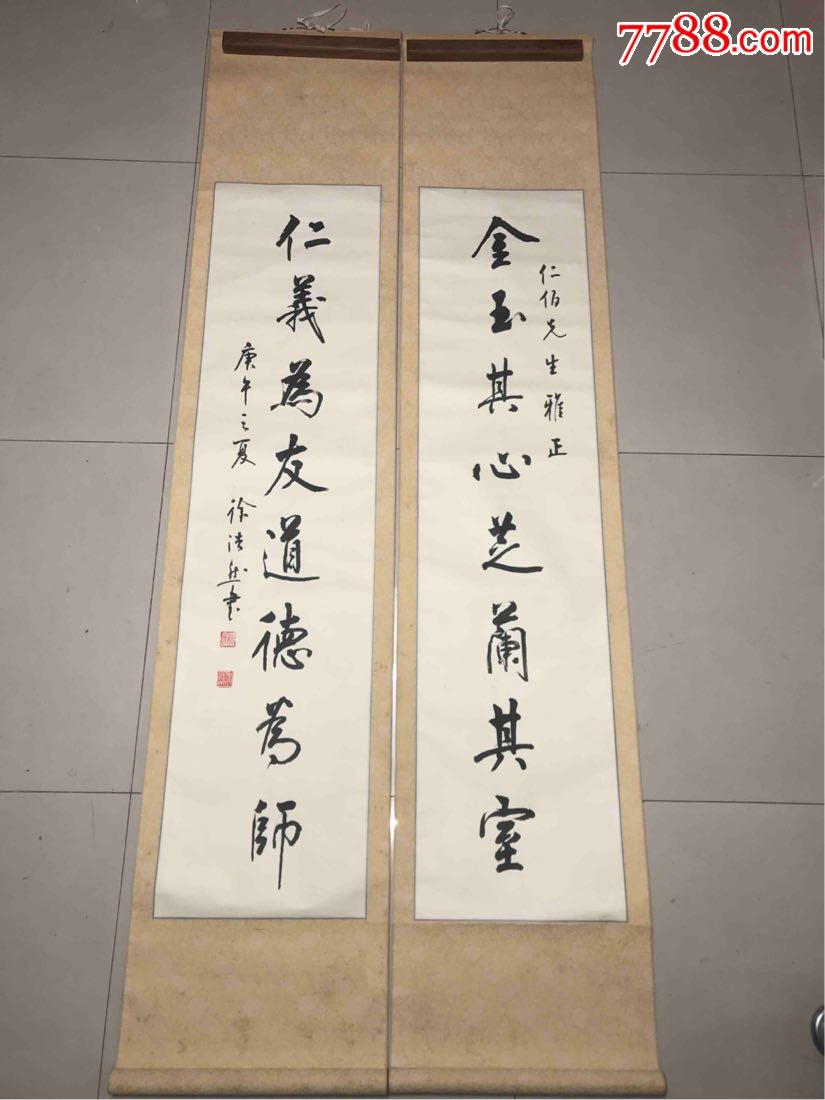 7788.com
金玉其心芝蘭其室
仁伯先生雅正
仁義為友道德為師
庚午之夏 徐浩然書